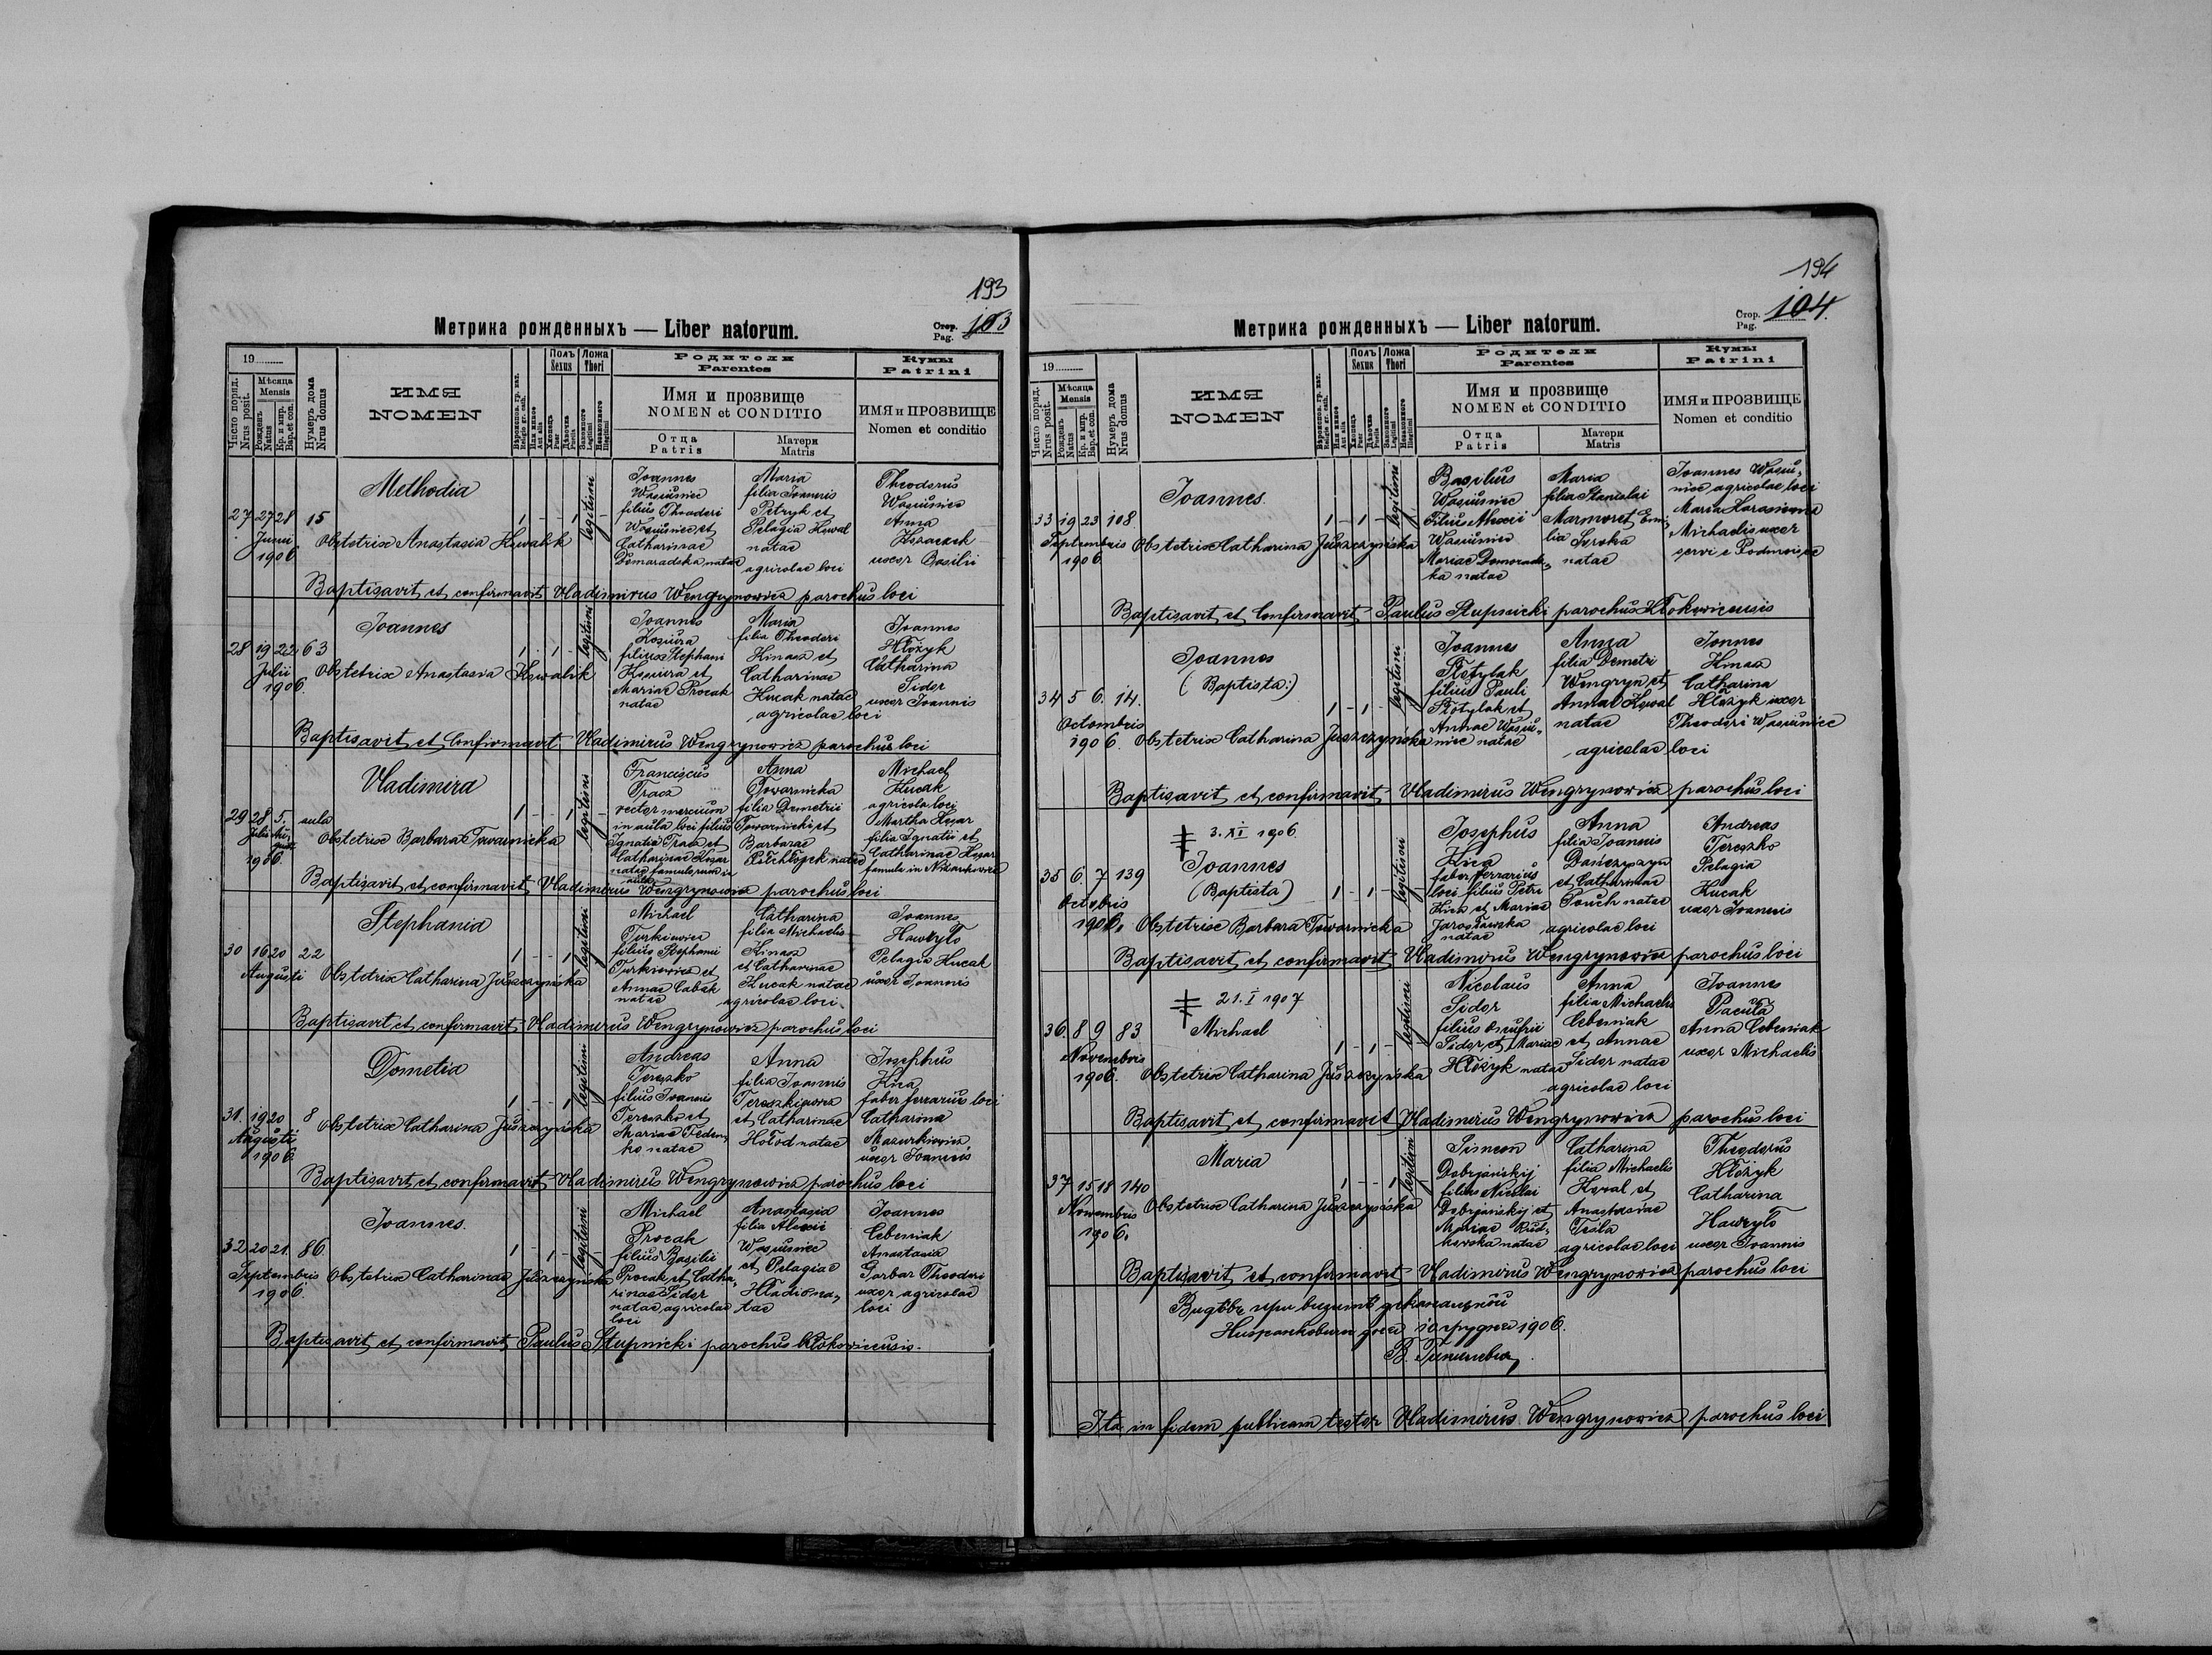 193
Метрика рожденныхъ — Liber natorum.
Стор. Pag. 103
19
Число поряд. Nrus posit.
Мѣсяца Mensis
Рожденъ Natus
Кр. и мир. Bap. et con.
Нумеръ дома Nrus domus
ИМЯ
NOMEN
Полъ Sexus
Ложа Thori
Родители
Parentes
Имя и прозвище
NOMEN et CONDITIO
Отца Patris
Матери Matris
Кумы
Patrini
ИМЯ и ПРОЗВИЩЕ
Nomen et conditio
27 27 28 15
Junii
1906
Methodia
Obstetrix Anastasia Kowalik
1 - - 1 legitimi -
Joannes
Wasiuniec
filius Theodori
Wasiuniec et
Catharinae
Domaradzka natae
Maria
filia Joannis
Petryk et
Pelagia Kowal
natae
agricolae loci
Theodorus
Wasiuniec
Anna
uxor Basilii
Baptisavit et confirmavit Vladimirus Wengrynowicz parochus loci
28 19 22 63
Julii
1906.
Joannes
Obstetrix Anastasia Kowalik
1 - 1 - legitimi
Joannes
Kosiura
filius Stephani
Kosiura et
Mariae Procak
natae
Maria
filia Theodori
Kinasz et
Catharinae
Hucak natae
agricolae loci
Joannes
Hłożyk
Catharina
Sidor
uxor Joannis
Baptisavit et Confirmavit Vladimirus Wengrynowicz parochus loci
29 28 5. aula
Julii
1906.
Vladimira
Obstetrix Barbara Towarnicka
1 - - 1 legitimi -
Franciscus
Tracz
rector mercium
in aula loci filius
Ignatii Tracz et
Catharinae
natae famulorum in
aula
Anna
Towarnicka
filia Demetrii
Towarnicki et
Barbarae
natae
Michael
Hucak
agricola loci
Martha
filia Ignatii et
Catharinae
famula in
Baptisavit et confirmavit Vladimirus Wengrynowicz parochus loci
30 16 20 22
Augusti
Stephania
Obstetrix Catharina Juszczyńska
1 - - 1 legitimi
Michael
Turkiewicz
filius Stephani
Turkiewicz et
Annae Cabak
natae
Catharina
filia Michaelis
Kinasz
et Catharinae
Hucak natae
agricolae loci
Joannes
Hawryło
Pelagia Hucak
uxor Joannis
Baptisavit et confirmavit Vladimirus Wengrynowicz parochus loci
31. 19 20 8
Augusti
1906
Dometia
Obstetrix Catharina Juszczyńska
1 - - 1 legitimi
Andreas
Tereszko
filius Joannis
Tereszko et
Mariae Feden,
ko natae
Anna
filia Joannis
Tereszkiewicz
et Catharinae
Hołod natae
Josephus
Kica
faber ferrarius loci
Catharina
Mazurkiewicz
uxor Joannis
Baptisavit et confirmavit Vladimirus Wengrynowicz parochus loci
32 20 21. 86
Septembris
1906
Joannes.
Obstetrix Catharinae Juszczyńska
1 - 1 - legitimi -
Michael
Procak
filius Basilii
Procak et Catha,
rinae Sidor
natae, agricolae
loci
Anastasia
filia Alexii
Wasiuniec
et Pelagiae
Hładio na,
tae
Joannes
Cebeniak
Anastasia
Garbar Theodori
uxor agricolae
loci
Baptisavit et confirmavit Paulus Stupnicki parochus Kłokovicensis.
194
Метрика рожденныхъ — Liber natorum.
Стор. Pag. 104.
19
Число поряд. Nrus posit.
Мѣсяца Mensis
Рожденъ Natus
Кр. и мир. Bap. et con.
Нумеръ дома Nrus domus
ИМЯ
NOMEN
Полъ Sexus
Ложа Thori
Родители
Parentes
Имя и прозвище
NOMEN et CONDITIO
Отца Patris
Матери Matris
Кумы
Patrini
ИМЯ и ПРОЗВИЩЕ
Nomen et conditio
33 19 23 108
Septembris
1906
Joannes.
Obstetrix Catharina Juszczyńska
1 - 1 - legitimi -
Basilius
Wasiuniec
Filius Alexii
Wasiuniec
Mariae Domaradz,
ka natae
Maria
filia Stanislai
Marmoret Emi,
lia Sroka
natae
Joannes Wasiu,
niec, agricolae loci
Maria
Michaelis uxor
servi e Podmojsce
Baptisavit et Confirmavit Paulus Stupnicki parochus Kłokovicensis
34 5 6. 14.
Octombris
1906.
Joannes
(Baptista:)
Obstetrix Catharina Juszczyńska
1 - 1 - legitimi
Joannes
Stotylak
filius Pauli
Stotylak et
Annae Wasiu,
niec natae
Anna
filia Demetri
Wengryn et
Anna Kowal
natae
agricolae loci
Ionnes
Kinasz
Catharina
Hłożyk uxor
Theodori Wasiuniec
Baptisavit et confirmavit Vladimirus Wengrynowicz parochus loci
35 6. 7 139
Octobris
1906.
‡ 3. XI 1906.
Joannes
(Baptista)
Obstetrix Barbara Towarnicka
1 - 1 - legitimi -
Josephus
Kica
faber ferrarius
loci filius Petri
Kica et Mariae
Jarosławska
natae
Anna
filia Joannis
Danczyszyn
et Catharinae
Pouch natae
agricolae loci
Andreas
Tereszko
Pelagia
Hucak
uxor Joannis
Baptisavit et confirmavit Vladimirus Wengrynowicz parochus loci
36. 8 9 83
Novembris
1906.
‡ 21. I 1907
Michael
Obstetrix Catharina Juszczyńska
1 - 1 - legitimi -
Nicolaus
Sidor
filius Onufrii
Sidor et Mariae
Hłożyk natae
Anna
filia Michaelis
Cebeniak
et Annae
Sidor natae
agricolae loci
Joannes
Pacuła
Anna Cebeniak
uxor Michaelis
Baptisavit et confirmavit Vladimirus Wengrynowicz parochus loci
37 15 18 140
Novembris
1906.
Maria
Obstetrix Catharina Juszczyńska
1 - - 1 legitimi
Simeon
Dobrjańskij
filius Nicolai
Dobrjańskij et
Mariae Rud,
kowska natae
Catharina
filia Michaelis
Kowal et
Anastasiae
Tesla
agricolae loci
Theodorus
Hłożyk
Catharina
Hawryło
uxor Joannis
Baptisavit et confirmavit Vladimirus Wengrynowicz parochus loci
Видѣвъ при визитѣ деканальнôй
дня 10 грудня 1906.
Ita in fidem publicam testor Vladimirus Wengrynowicz parochus loci